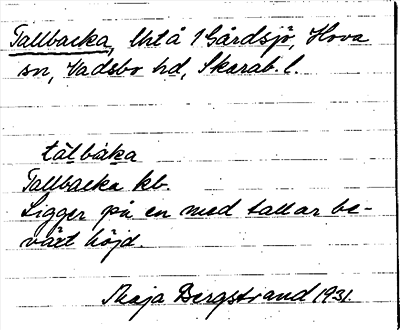 Tallbacka, Urtå 1 Gårdsjö, Hova
sn, Vadsbo hd, Skarab. l.
tálbàka
Tallbacka kb.
Ligger på en med tallar be-
växt höjd.
Maja Bergstrand 1931.